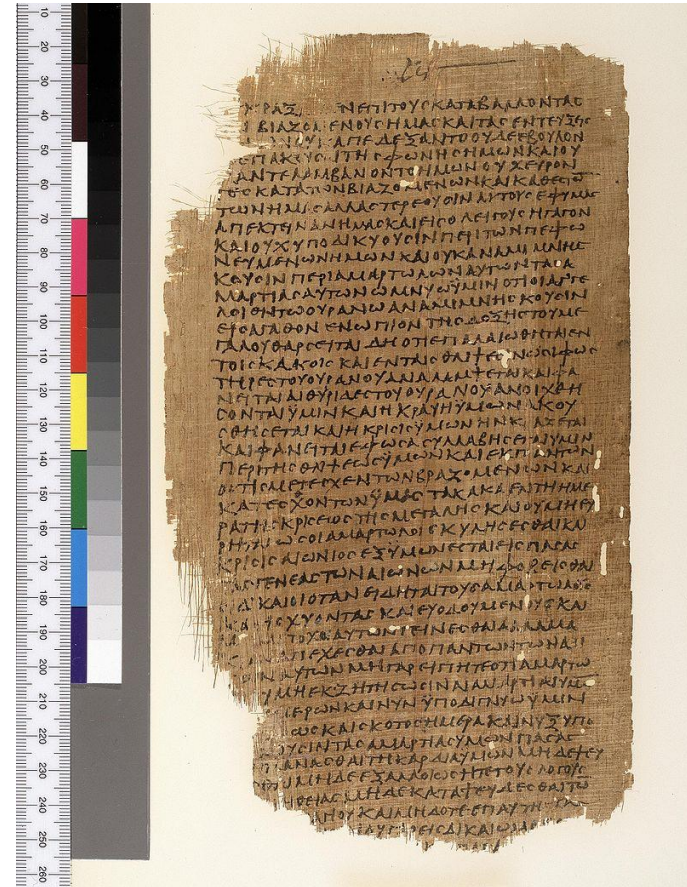 ΝΕΠΙΤΟΥΣΚΑΤΑΒΑΛΛΟΝΤΑΣ
ΒΙΑΖΟΜΕΝΟΥΣΗΜΑΣΚΑΙΤΑΣΕΝΤΕΥΞΕΙΣ
ΑΠΕΔΕΞΑΝΤΟΟΥΔΕΕΒΟΥΛΟΝ
ΕΠΑΚΟΥΣΑΙΤΗΣΦΩΝΗΣΗΜΩΝΚΑΙΟΥ
ΑΝΤΕΛΑΜΒΑΝΟΝΤΟΗΜΩΝΟΥΧΕΥΡΟΝ
ΤΕΣΚΑΤΑΤΩΝΒΙΑΖΟΜΕΝΩΝΚΑΙΚΑΤΕΣΘ
ΤΩΝΗΜΑΣΑΛΛΑΣΤΕΡΕΟΥΣΙΝΑΥΤΟΥΣΕΦΥΜΑΣ
ΑΠΕΚΤΕΙΝΑΝΗΜΑΣΚΑΙΕΙΣΟΛΕΙΓΟΥΣΗΓΑΓΟΝ
ΚΑΙΟΥΧΥΠΟΔΙΚΥΟΥΣΙΝΠΕΡΙΤΩΝΠΕΦΩ
ΝΕΥΜΕΝΩΝΗΜΩΝΚΑΙΟΥΚΑΝΑΜΙΜΝΗΣ
ΚΟΥΣΙΝΠΕΡΙΑΜΑΡΤΩΛΩΝΑΥΤΩΝΤΑΣΑ
ΜΑΡΤΙΑΣΑΥΤΩΝΟΜΝΥΩΫΜΙΝΟΤΙΟΙΑΓΓΕ
ΛΟΙΕΝΤΩΟΥΡΑΝΩΑΝΑΜΙΜΝΗΣΚΟΥΣΙΝ
ΕΙΣΑΓΑΘΟΝΕΝΩΠΙΟΝΤΗΣΔΟΞΗΣΤΟΥΜΕ
ΓΑΛΟΥΘΑΡΣΕΙΤΑΙΔΗΟΤΙΕΠΑΛΑΙΩΘΗΤΑΙΕΝ
ΤΟΙΣΚΑΚΟΙΣΚΑΙΕΝΤΑΙΣΘΛΙΨΕΣΙΝΩΣΕΙΦΩΣ
ΤΗΡΕΣΤΟΥΟΥΡΑΝΟΥΑΝΑΛΑΜΨΕΤΑΙΚΑΙΦΑ
ΝΕΙΤΑΙΑΙΘΥΡΙΔΕΣΤΟΥΟΥΡΑΝΟΥΑΝΟΙΧΘΗ
ΣΟΝΤΑΙΫΜΙΝΚΑΙΗΚΡΑΥΗΫΜΩΝΑΚΟΥ
ΣΘΗΣΕΤΑΙΚΑΙΗΚΡΙΣΙΣΫΜΩΝΗΝΚΡΑΖΕΤΑΙ
ΚΑΙΦΑΝΕΙΤΑΙΕΦΟΣΑΣΥΛΛΑΒΗΣΕΤΑΙΥΜΙΝ
ΠΕΡΙΤΗΣΘΛΙΨΕΩΣΫΜΩΝΚΑΙΕΚΠΑΝΤΩΝ
ΟΣΤΙΣΜΕΤΕΣΧΕΝΤΩΝΒΙΑΖΟΜΕΝΩΝΚΑΙ
ΚΑΤΕΣΘΟΝΤΩΝΫΜΑΣΤΑΚΑΚΑΕΝΤΗΗΜΕ
ΡΑΤΗΣΚΡΙΣΕΩΣΤΗΣΜΕΓΑΛΗΣΚΑΙΟΥΜΗΕΥ
ΡΗΤΑΙΩΣΟΙΑΜΑΡΤΩΛΟΙΣΚΥΛΗΣΕΣΘΑΙΚΑΙ
ΚΡΙΣΙΣΑΙΩΝΙΟΣΕΞΥΜΩΝΕΣΤΑΙΕΙΣΠΑΣΑΣ
ΤΑΣΓΕΝΕΑΣΤΩΝΑΙΩΝΩΝΜΗΦΟΒΕΙΣΘΑΙ
ΔΙΚΑΙΟΙΟΤΑΝΕΙΔΗΤΑΙΤΟΥΣΑΜΑΡΤΩΛΟΥΣ
ΚΑΤΙΣΧΥΟΝΤΑΣΚΑΙΕΥΟΔΟΥΜΕΝΟΥΣΚΑΙ
ΤΟΧΟΙΑΥΤΩΝΓΕΙΝΕΣΘΑΙΑΛΛΑΜΑ
ΑΠΕΧΕΣΘΑΙΑΠΟΠΑΝΤΩΝΤΩΝΑΔΙ
ΑΥΤΩΝΜΗΓΑΡΕΙΠΗΤΕΟΤΙΑΜΑΡΤΩ
ΜΗΕΚΖΗΤΗΣΩΣΙΝ
ΚΑΙΝΥΝΥΠΟΔΙΓΝΥΩΫΜΙΝ
ΚΑΙΣΚΟΤΟΣΗΜΕΡΑΚΑΙΝΥΞΥΠΟ
ΟΥΣΙΝΤΑΣΑΜΑΡΤΙΑΣΥΜΩΝΠΑΣΑΣ
ΠΛΑΝΑΣΘΑΙΤΗΚΑΡΔΙΑΥΜΩΝΜΗΔΕΨΕΥ
ΜΗΔΕΕΞΑΛΛΟΙΩΣΗΤΕΤΟΥΣΛΟΓΟΥΣ
ΘΕΙΑΣΜΗΔΕΚΑΤΑΨΕΥΔΕΣΘΑΙΤΩ
ΚΑΙΜΗΔΟΤΕΕΠΑΥ
10
20
30
40
50
60
70
80
90
100
110
120
130
140
150
160
170
180
190
200
210
220
230
240
250
260